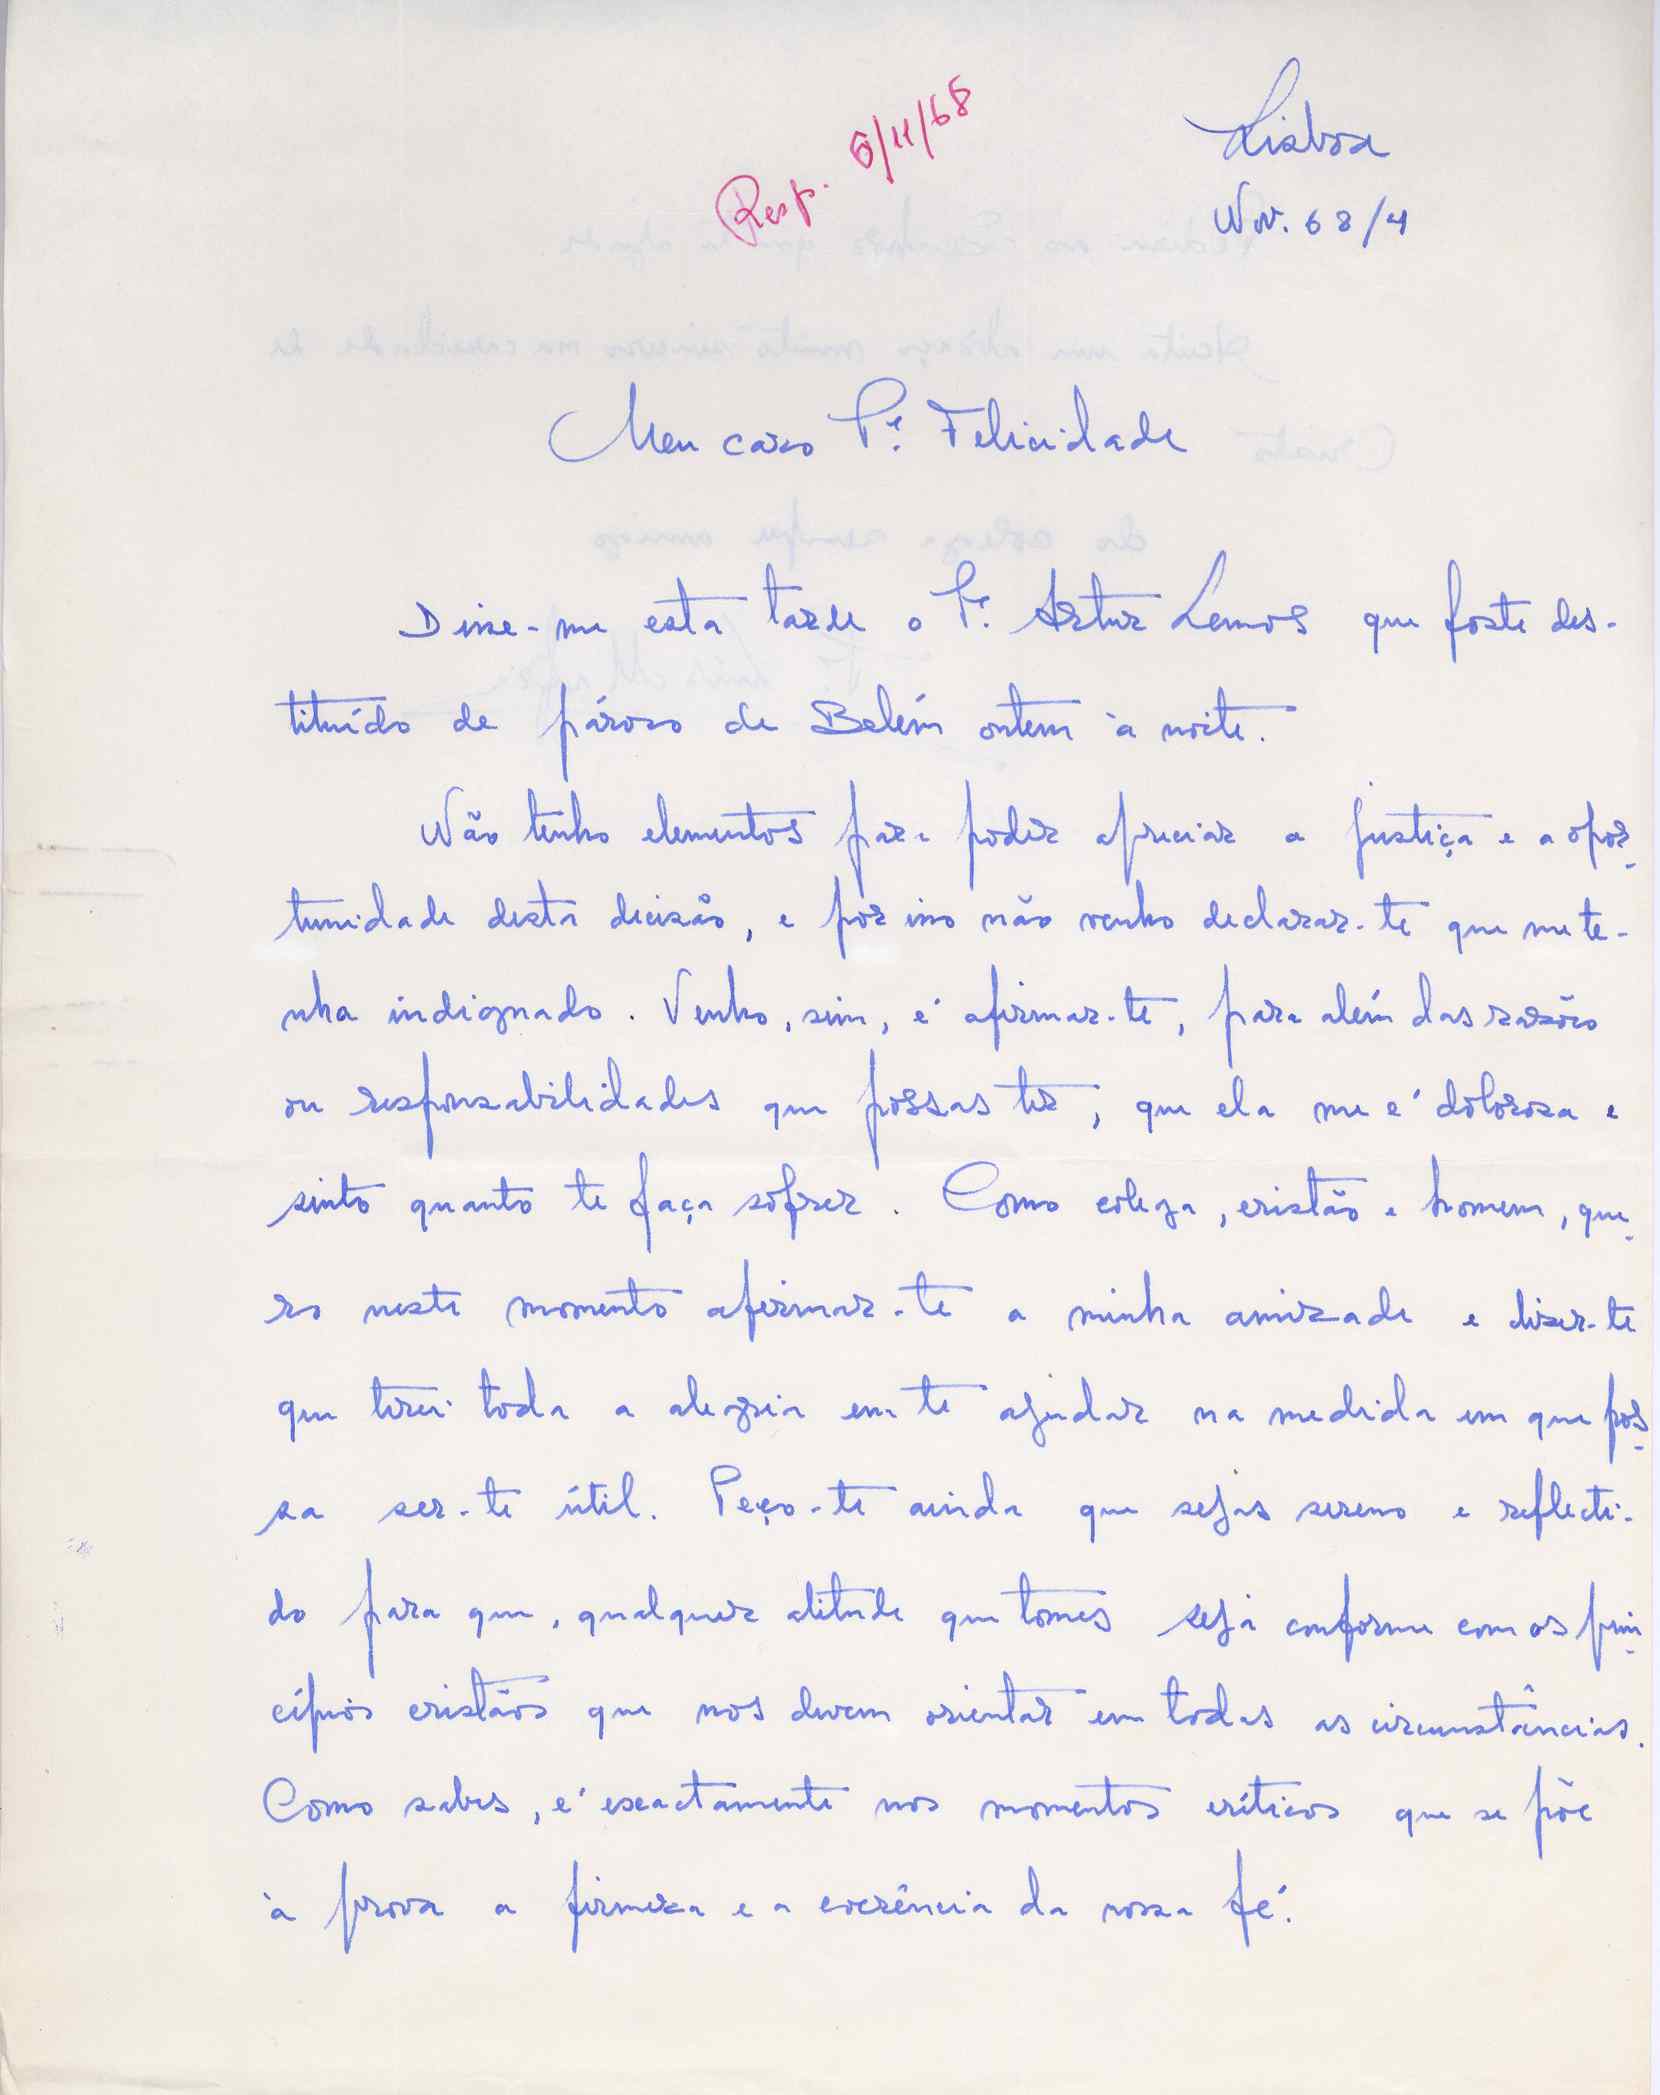 Lisboa
Resp. 6/11/68
Nov. 68/4
Meu caro Pe. Felicidade
Disse-me esta tarde o Pe. Artur Lemos que foste des-
tituído de pároco de Belém ontem à noite.
Não tenho elementos para poder apreciar a justiça e a opor-
tunidade desta decisão, e por isso não venho declarar-te que me te-
nha indignado. Venho, sim, é afirmar-te, para além das razões
ou responsabilidades que possas ter, que ela me é dolorosa e
sinto quanto te faça sofrer. Como colega, cristão e homem, que-
ro neste momento afirmar-te a minha amizade e dizer-te
que terei toda a alegria em te ajudar na medida em que pos-
sa ser-te útil. Peço-te ainda que sejas sereno e reflecti-
do para que, qualquer atitude que tomes seja conforme com os prin-
cípios cristãos que nos devem orientar em todas as circunstâncias.
Como sabes, é exactamente nos momentos críticos que se põe
à prova a firmeza e a coerência da nossa fé.